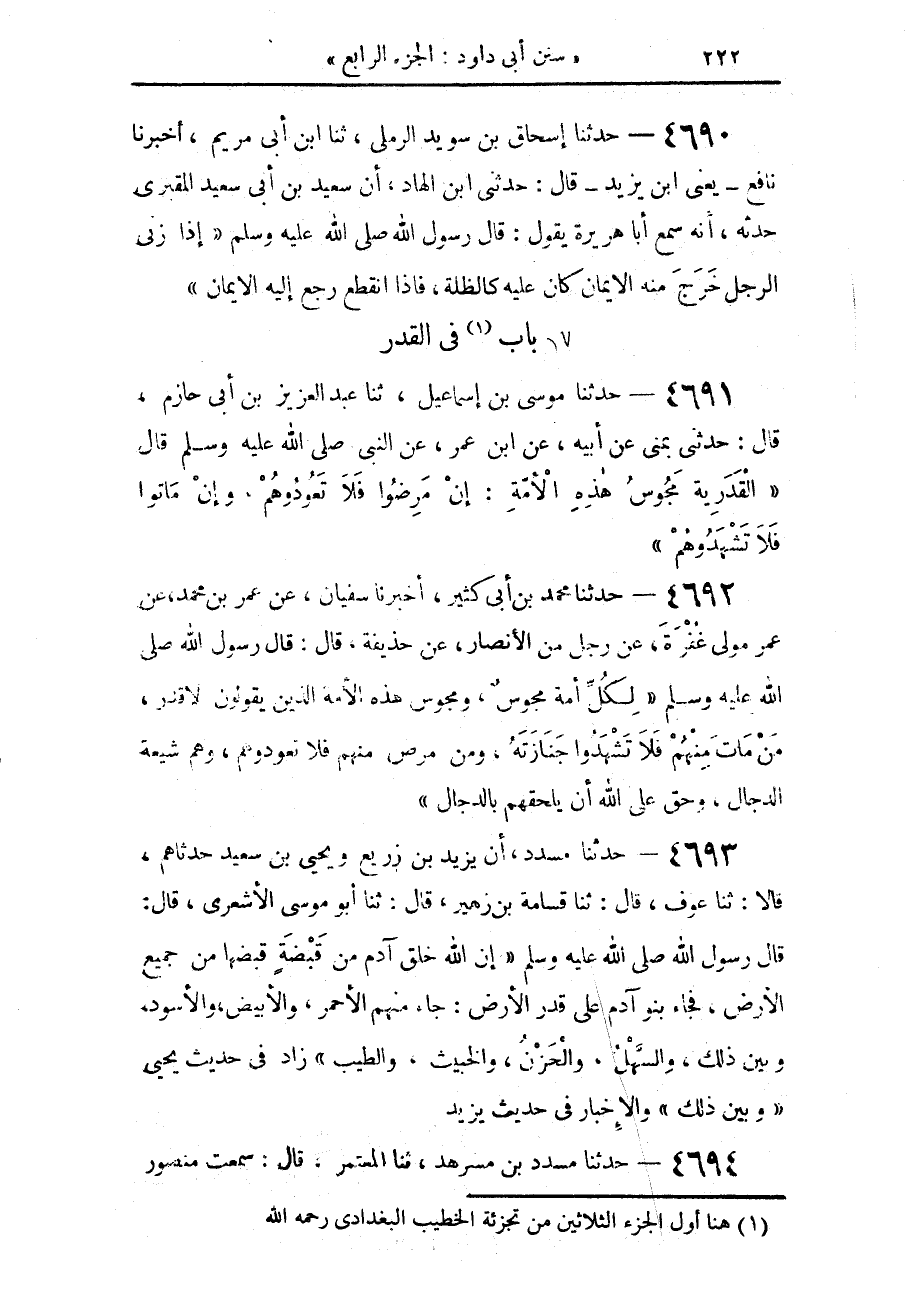 ٢٢٢ « سنن أبى داود : الجزء الرابع »
٤٦٩٠ — حدثنا إسحاق بن سويد الرملى ، ثنا ابن أبى مريم ، أخبرنا
نافع ــ يعنى ابن يزيد ــ قال : حدثنى ابن الهاد ، أن سعيد بن أبى سعيد المقبرى
حدثه ، أنه سمع أبا هريرة يقول : قال رسول الله صلى الله عليه وسلم « إذا زنى
الرجل خَرَجَ منه الايمان كان عليه كالظلة ، فاذا انقطع رجع إليه الايمان »
١٧ باب (١) فى القدر
٤٦٩١ — حدثنا موسى بن إسماعيل ، ثنا عبد العزيز بن أبى حازم ،
قال : حدثنى بمنى عن أبيه ، عن ابن عمر ، عن النبى صلى الله عليه وسلم قال
« الْقَدَرِية مَجُوسُ هٰذِهِ الْأمّةِ : إنْ مَرِضُوا فَلَا تَعُودُوهُمْ ، وإنْ مَاتوا
فَلَا تَشْهَدُوهُمْ »
٤٦٩٢ — حدثنا محمد بن أبى كثير ، أخبرنا سفيان ، عن عمر بن محمد، عن
عمر مولى غُفْرَةَ ، عن رجل من الأنصار ، عن حذيفة ، قال : قال رسول الله صلى
الله عليه وسلم « لِكُلِّ أمة مجوسٌ ، ومجوس هذه الأمة الذين يقولون لاقدر ،
مَنْ مَاتَ مِنْهُمْ فَلَا تَشْهَدُوا جَنَازَتَهُ ، ومن مرض منهم فلا تعودوهم ، وهم شيعة
الدجال ، وحق على الله أن يلحقهم بالدجال »
٤٦٩٣ — حدثنا مسدد ، أن يزيد بن زريع ويحيى بن سعيد حدثاهم ،
قالا : ثنا عوف ، قال : ثنا قسامة بن زهير ، قال : ثنا أبو موسى الأشعرى ، قال:
قال رسول الله صلى الله عليه وسلم « إن الله خلق آدم من قَبْضَةٍ قبضها من جميع
الأرض ، فجاء بنو آدم على قدر الأرض : جاء منهم الأحمر ، والأبيض،والأسود،
وبين ذلك ، والسَّهْلُ ، والْحَزْنُ ، والخبيث ، والطيب » زاد فى حديث يحيى
« وبين ذلك » والإخبار فى حديث يزيد
٤٦٩٤ — حدثنا مسدد بن مسرهد ، ثنا المعتمر ، قال : سمعت منصور
(١) هنا أول الجزء الثلاثين من تجزئة الخطيب البغدادى رحمه الله